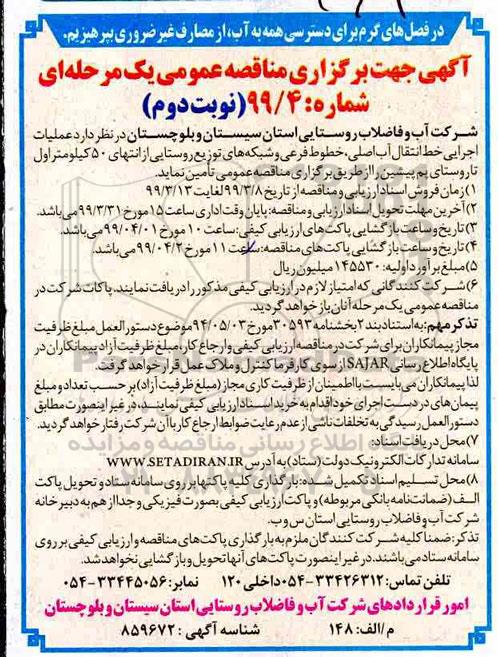 در فصل های گرم برای دسترسی همه به آب، از مصارف غیر ضروری بپرهیزیم.
آگهی جهت برگزاری مناقصه عمومی یک مرحله ای
شماره: ۹۹/۴ (نوبت دوم)
شرکت آب و فاضلاب روستایی استان سیستان و بلوچستان در نظر دارد عملیات
اجرایی خط انتقال آب اصلی، خطوط فرعی و شبکه های توزیع روستایی از انتهای ۵۰ کیلومتر اول
تا روستای پم پیشین را از طریق برگزاری مناقصه عمومی تأمین نماید.
۱) زمان فروش اسناد ارزیابی و مناقصه از تاریخ ۹۹/۳/۸ لغایت ۹۹/۳/۱۳
۲) آخرین مهلت تحویل اسناد ارزیابی و مناقصه: پایان وقت اداری ساعت ۱۵ مورخ ۹۹/۳/۳۱ می باشد.
۳) تاریخ و ساعت بازگشایی پاکت های ارزیابی کیفی: ساعت ۱۰ مورخ ۹۹/۰۴/۰۱ می باشد.
۴) تاریخ و ساعت بازگشایی پاکت های مناقصه: ساعت ۱۱ مورخ ۹۹/۰۴/۲ می باشد.
۵) مبلغ برآورد اولیه: ۱۴۵۵۳۰ میلیون ریال
۶) شرکت کنندگانی که امتیاز لازم در ارزیابی کیفی مذکور را دریافت نمایند. پاکات شرکت در
مناقصه عمومی یک مرحله آنان باز خواهد گردید.
تذکر مهم: به استناد بند ۲ بخشنامه ۳۰۵۹۳ مورخ ۹۴/۰۵/۰۳ موضوع دستورالعمل مبلغ ظرفیت
مجاز پیمانکاران برای شرکت در مناقصه ارزیابی کیفی و ارجاع کار، مبلغ ظرفیت آزاد پیمانکاران در
پایگاه اطلاع رسانی SAJAR از سوی کارفرما کنترل و ملاک عمل قرار خواهد گرفت.
لذا پیمانکاران می بایست با اطمینان از ظرفیت کاری مجاز (مبلغ ظرفیت آزاد) بر حسب تعداد و مبلغ
پیمان های در دست اجرای خود اقدام به خرید اسناد ارزیابی کیفی نمایند، در غیر اینصورت مطابق
دستورالعمل رسیدگی به تخلفات ناشی از عدم رعایت ضوابط ارجاع کار با آن شرکت رفتار خواهد گردید.
۷) محل دریافت اسناد:
سامانه تدارکات الکترونیک دولت (ستاد) به آدرس WWW.SETADIRAN.IR
۸) محل تسلیم اسناد تکمیل شده: بارگذاری کلیه پاکتها بر روی سامانه ستاد و تحویل پاکت
الف (ضمانت نامه بانکی مربوطه) و پاکت ارزیابی کیفی بصورت فیزیکی و جدا از هم به دبیرخانه
شرکت آب و فاضلاب روستایی استان س و ب.
تذکر: ضمنا کلیه شرکت کنندگان ملزم به بارگذاری پاکت های مناقصه و ارزیابی کیفی بر روی
سامانه ستاد می باشند. در غیر اینصورت پاکت های آنها تحویل و بازگشایی نخواهد شد.
تلفن تماس: ۳۳۴۲۶۳۱۲-۰۵۴ داخلی ۱۲۰ نمابر: ۳۳۴۴۵۰۵۶-۰۵۴
امور قراردادهای شرکت آب و فاضلاب روستایی استان سیستان و بلوچستان
م/الف: ۱۴۸ شناسه آگهی: ۸۵۹۶۷۲